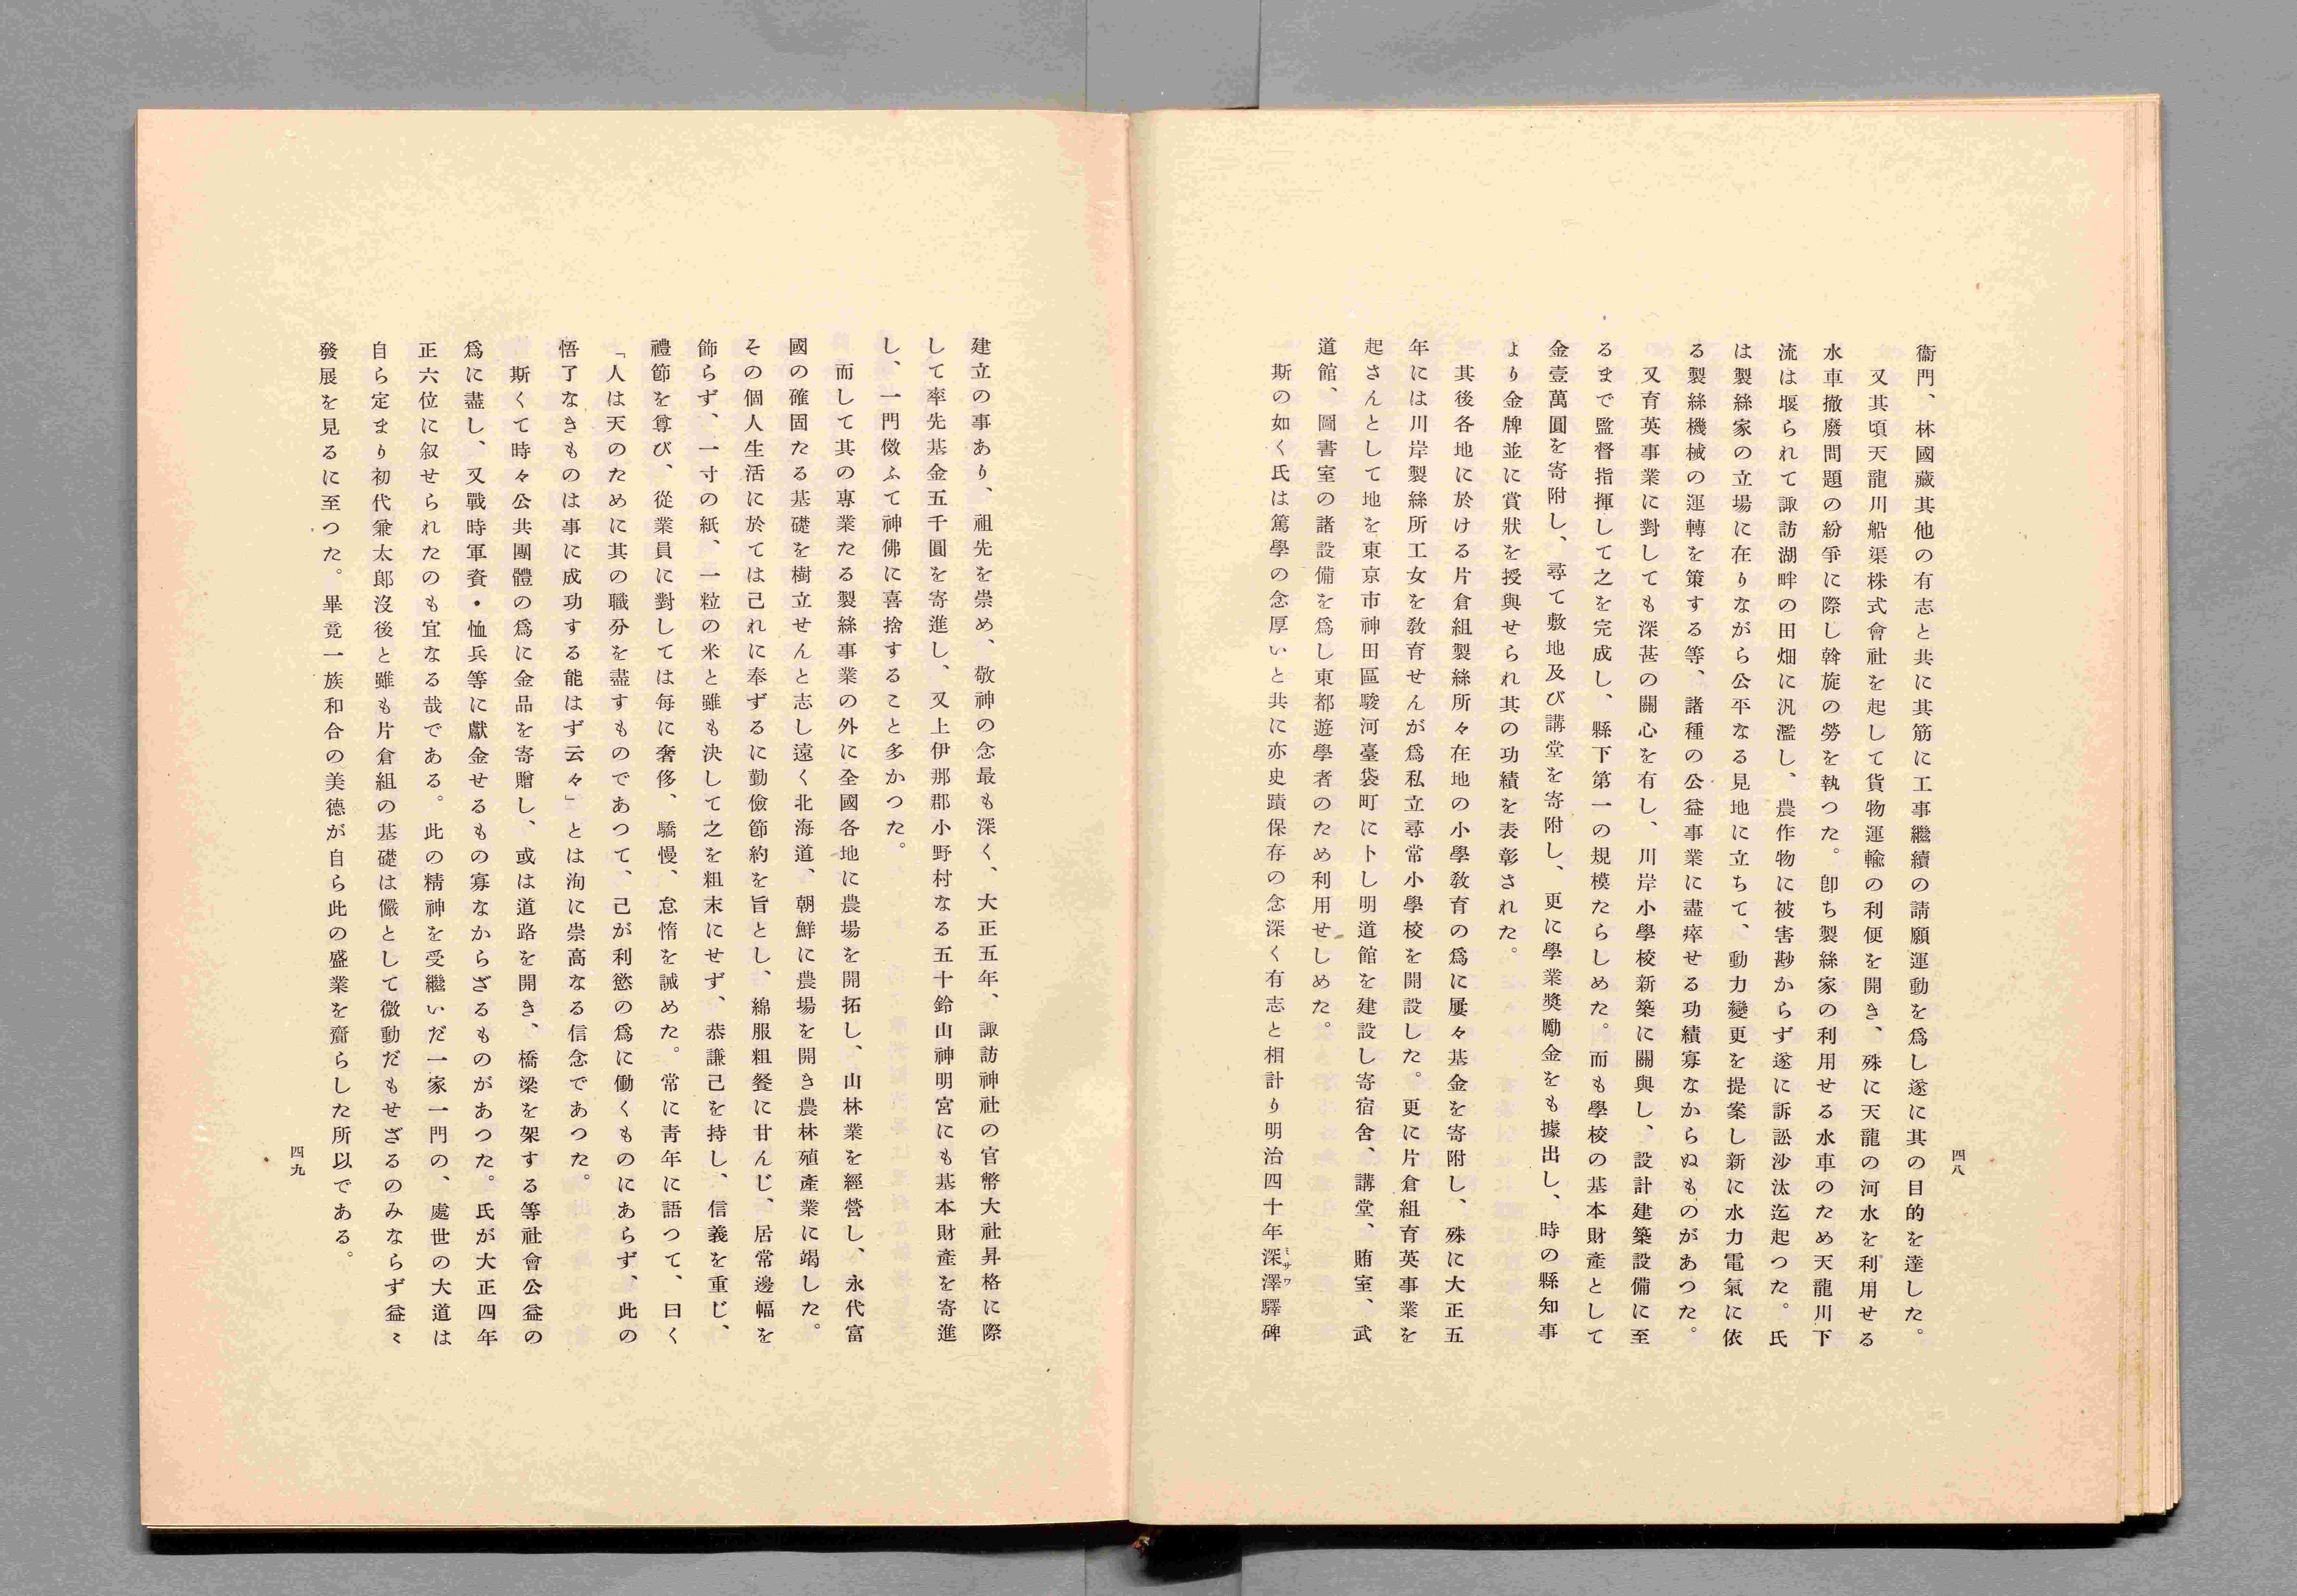 四八
衞門、林國藏其他の有志と共に其筋に工事繼續の請願運動を爲し遂に其の目的を達した。
又其頃天龍川船渠株式會社を起して貨物運輸の利便を開き、殊に天龍の河水を利用せる
水車撤廢問題の紛爭に際し斡旋の勞を執つた。卽ち製絲家の利用せる水車のため天龍川下
流は堰られて諏訪湖畔の田畑に汎濫し、農作物に被害尠からず遂に訴訟沙汰迄起つた。氏
は製絲家の立場に在りながら公平なる見地に立ちて、動力變更を提案し新に水力電氣に依
る製絲機械の運轉を策する等、諸種の公益事業に盡瘁せる功績寡なからぬものがあつた。
又育英事業に對しても深甚の關心を有し、川岸小學校新築に關與し、設計建築設備に至
るまで監督指揮して之を完成し、縣下第一の規模たらしめた。而も學校の基本財產として
金壹萬圓を寄附し、尋て敷地及び講堂を寄附し、更に學業奬勵金をも據出し、時の縣知事
より金牌並に賞狀を授與せられ其の功績を表彰された。
其後各地に於ける片倉組製絲所々在地の小學教育の爲に屢々基金を寄附し、殊に大正五
年には川岸製絲所工女を教育せんが爲私立尋常小學校を開設した。更に片倉組育英事業を
起さんとして地を東京市神田區駿河臺袋町に卜し明道館を建設し寄宿舍、講堂、賄室、武
道館、圖書室の諸設備を爲し東都遊學者のため利用せしめた。
斯の如く氏は篤學の念厚いと共に亦史蹟保存の念深く有志と相計り明治四十年深澤驛碑
ミサワ
建立の事あり、祖先を崇め、敬神の念最も深く、大正五年、諏訪神社の官幣大社昇格に際
して率先基金五千圓を寄進し、又上伊那郡小野村なる五十鈴山神明宮にも基本財產を寄進
し、一門傚ふて神佛に喜捨すること多かつた。
而して其の專業たる製絲事業の外に全國各地に農場を開拓し、山林業を經營し、永代富
國の確固たる基礎を樹立せんと志し遠く北海道、朝鮮に農場を開き農林殖產業に竭した。
その個人生活に於ては己れに奉ずるに勤儉節約を旨とし、綿服粗餐に甘んじ、居常邊幅を
飾らず、一寸の紙、一粒の米と雖も決して之を粗末にせず、恭謙己を持し、信義を重じ、
禮節を尊び、從業員に對しては每に奢侈、驕慢、怠惰を誡めた。常に靑年に語つて、曰く
「人は天のために其の職分を盡すものであつて、己が利慾の爲に働くものにあらず、此の
悟了なきものは事に成功する能はず云々」とは洵に崇高なる信念であつた。
斯くて時々公共團體の爲に金品を寄贈し、或は道路を開き、橋梁を架する等社會公益の
爲に盡し、又戰時軍資・恤兵等に獻金せるもの寡なからざるものがあつた。氏が大正四年
正六位に叙せられたのも宜なる哉である。此の精神を受繼いだ一家一門の、處世の大道は
自ら定まり初代兼太郞沒後と雖も片倉組の基礎は儼として微動だもせざるのみならず益々
發展を見るに至つた。畢竟一族和合の美德が自ら此の盛業を齎らした所以である。
四九